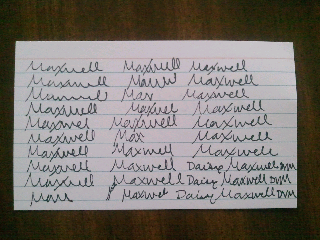 Maxwell Maxwell Maxwell
Maxwell Maxwell Maxwell
Maxwell Max Maxwell
Maxwell Maxwel Maxwell
Maxwel Maxwell Maxwell
Maxwell Max Maxwell
Maxwell Maxwell Maxwell
Maxwell Maxwell Daisy Maxwell DVM
Maxwell Maxwell Daisy Maxwell DVM
Maxwel Daisy Maxwell DVM